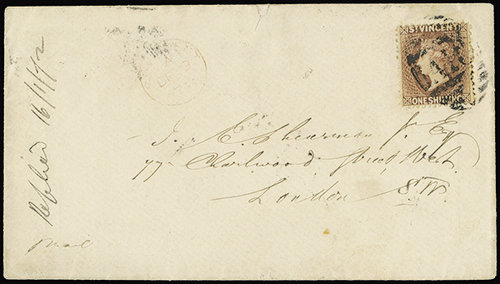 ST VINCENT
ONE SHILLING
J. E. Sherman Jr Esq
77 Charlwood Street, West
London S.W.
Replied 16/1/72